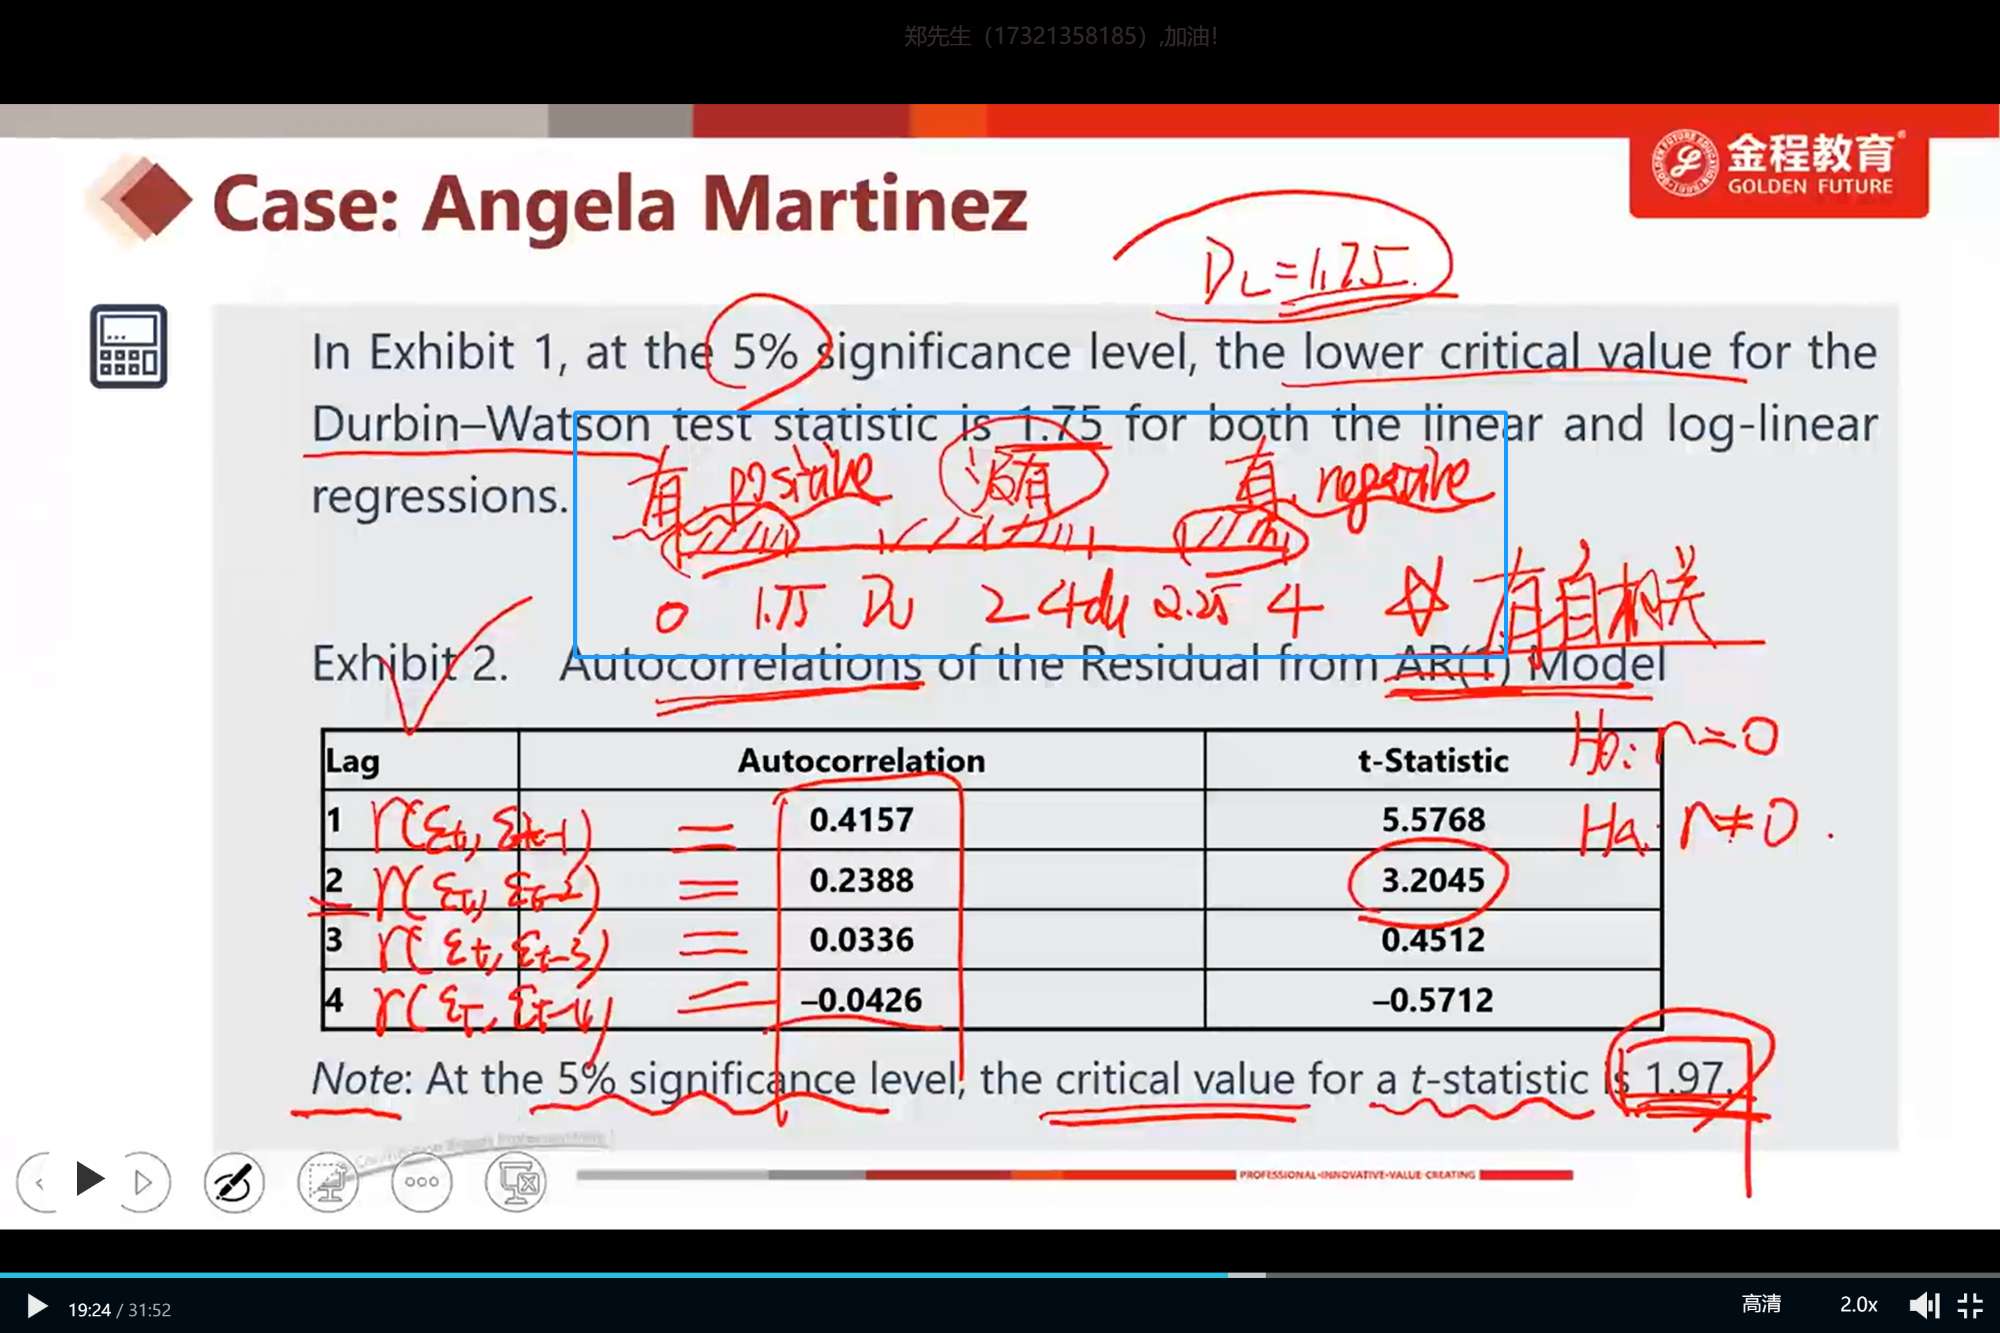 郑先生（17321358185）,加油!
金程教育
GOLDEN FUTURE
Case: Angela Martinez
DL=1.75.
In Exhibit 1, at the 5% significance level, the lower critical value for the
Durbin–Watson test statistic is 1.75 for both the linear and log-linear
regressions.
有 positive 没有 有 negative
0 1.75 Du 2 4-du 2.25 4 有自相关
Exhibit 2. Autocorrelations of the Residual from AR(1) Model
H0: r=0
Lag Autocorrelation t-Statistic
1 r(εt, εt-1) = 0.4157 5.5768
Ha: r≠0.
2 r(εt, εt-2) = 0.2388 3.2045
3 r(εt, εt-3) = 0.0336 0.4512
4 r(εt, εt-4) = –0.0426 –0.5712
Note: At the 5% significance level, the critical value for a t-statistic is 1.97.
PROFESSIONAL·INNOVATIVE·VALUE·CREATING
19:24 / 31:52
高清
2.0x